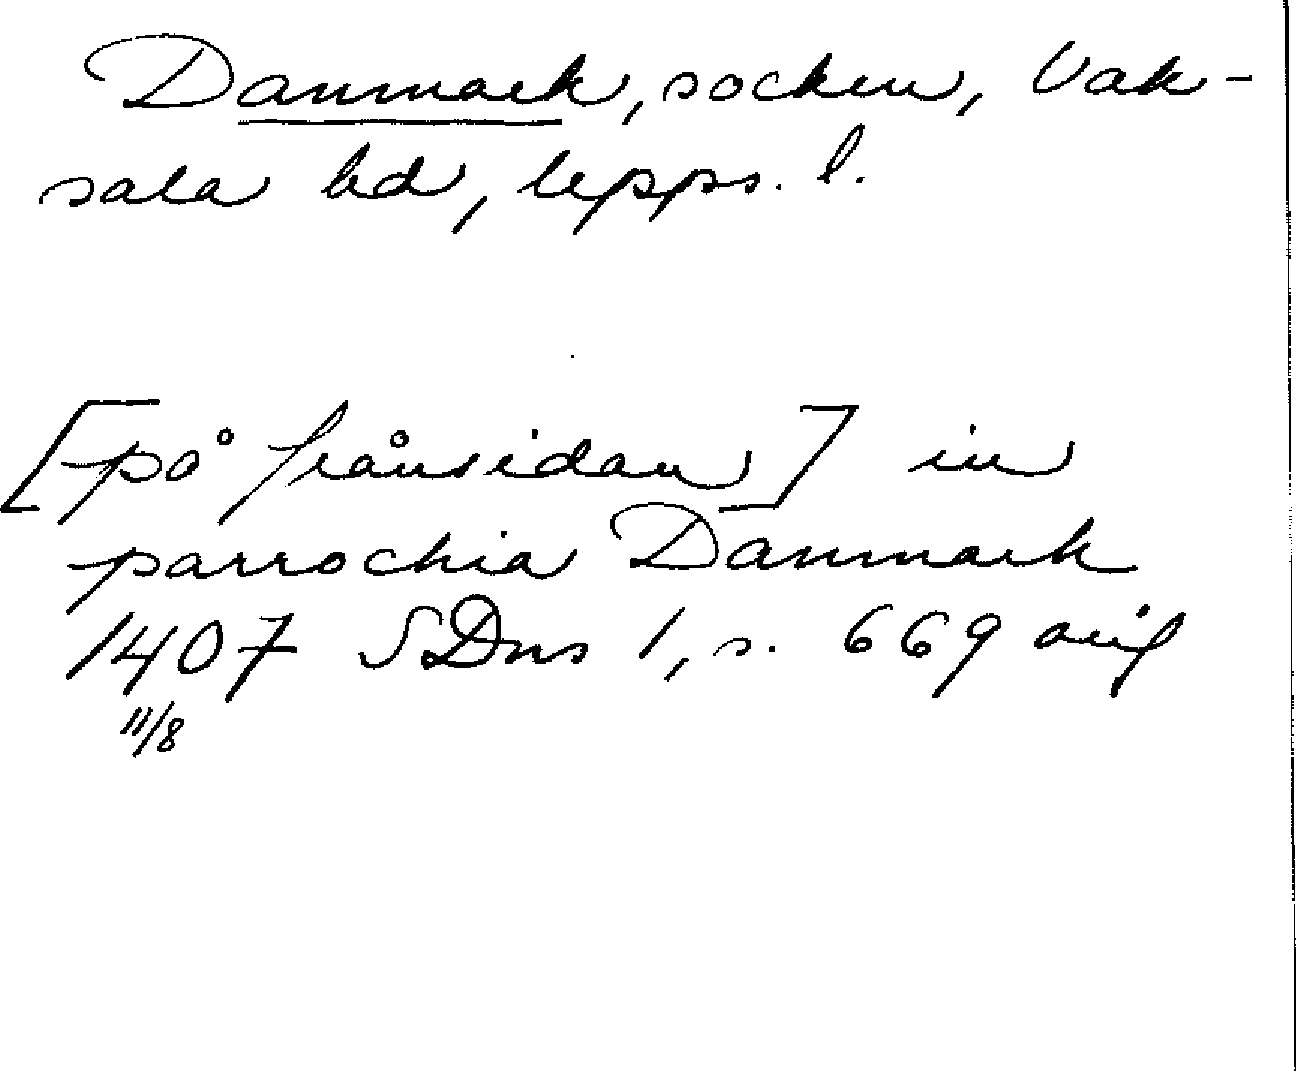 Danmark, socken, Vak-
sala hd, Upps. l.
[på frånsidan] in
parrochia Danmark
1407 SDns 1, s. 669 orig
11/8